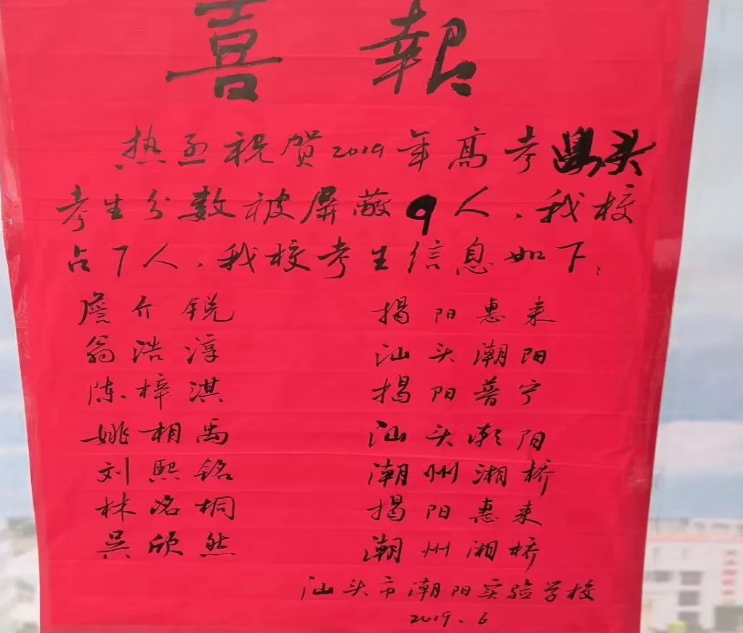 喜報
热烝祝贺2019年高考汕头
考生分数被屏蔽9人，我校
占7人，我校考生信息如下：
詹介锐 揭阳惠来
翁浩淳 汕头潮阳
陈梓淇 揭阳普宁
姚相禹 汕头潮阳
刘熙铭 潮州湘桥
林洺桐 揭阳惠来
吴欣然 潮州湘桥
汕头市潮阳实验学校
2019.6